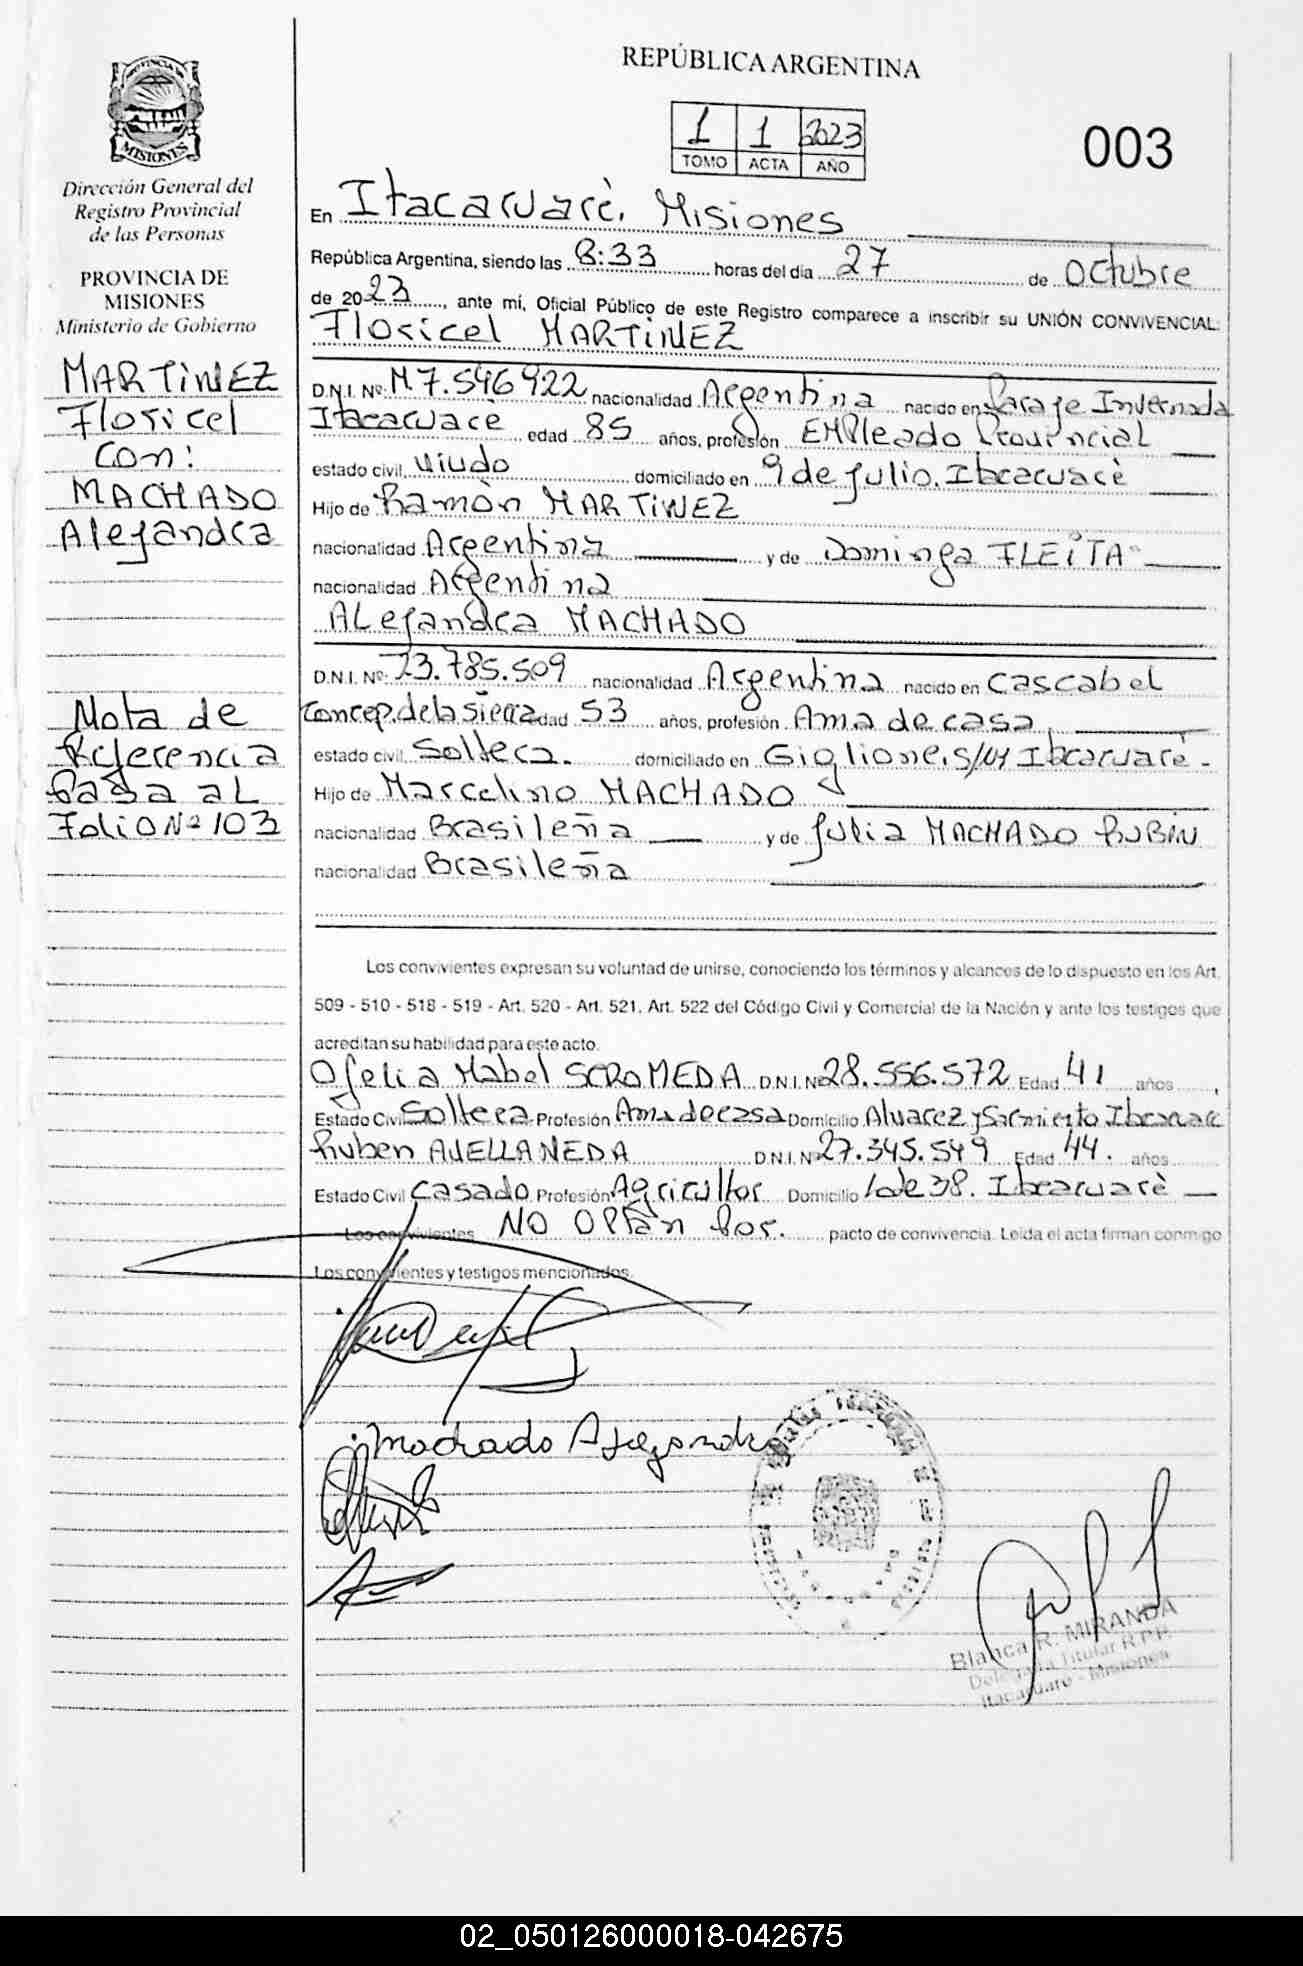 REPÚBLICA ARGENTINA
1 1 2023
TOMO ACTA AÑO
003
PROVINCIA DE
MISIONES
Dirección General del
Registro Provincial
de las Personas
PROVINCIA DE
MISIONES
Ministerio de Gobierno
MARTINEZ
Floricel
Con:
MACHADO
Alejandra
Nota de
Referencia
Pasa al
Folio Nº 103
En Itacaruarè. Misiones
República Argentina, siendo las 8:33 horas del día 27 de Octubre
de 2023, ante mí, Oficial Público de este Registro comparece a inscribir su UNIÓN CONVIVENCIAL:
Floricel MARTINEZ
D.N.I. Nº: M.7.546922 nacionalidad Argentina nacido en Paraje Invernada
Itacaruarè edad 85 años, profesión EMPleado Provincial
estado civil Viudo domiciliado en 9 de Julio. Itacaruarè
Hijo de Ramòn MARTINEZ
nacionalidad Argentina y de Dominga FLEITA
nacionalidad Argentina
ALejandra MACHADO
D.N.I. Nº: 23.785.509 nacionalidad Argentina nacido en Cascabel
Concep. de la Sierra edad 53 años, profesión Ama de casa
estado civil Soltera. domiciliado en Giglione, S/Nº Itacaruarè-
Hijo de Marcelino MACHADO
nacionalidad Brasileña y de Julia MACHADO RUBIN
nacionalidad Brasileña
Los convivientes expresan su voluntad de unirse, conociendo los términos y alcances de lo dispuesto en los Art.
509 - 510 - 518 - 519 - Art. 520 - Art. 521, Art. 522 del Código Civil y Comercial de la Nación y ante los testigos que
acreditan su habilidad para este acto.
Ofelia Mabel SCROMEDA D.N.I. Nº 28.556.572 Edad 41 años,
Estado Civil Soltera Profesión Ama de casa Domicilio Alvarez y Sarmiento Itacaruarè
Ruben AVELLANEDA D.N.I. Nº 27.345.549 Edad 44. años
Estado Civil Casado Profesión Agricultor Domicilio Lote 38. Itacaruarè
Los convivientes NO OPTan Por. pacto de convivencia. Leída el acta firman conmigo
Los convivientes y testigos mencionados.
Machado Alejandra
Blanca R. MIRANDA
Delegada Titular R.P.P.
Itacaruaré - Misiones
02_050126000018-042675